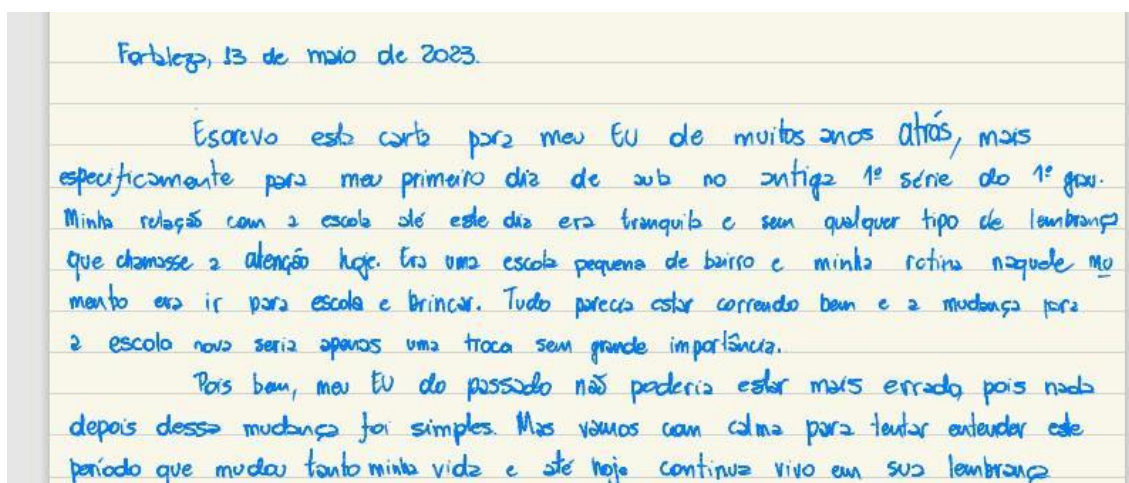 Fortaleza, 13 de maio de 2023.
Escrevo esta carta para meu EU de muitos anos atrás, mais
especificamente para meu primeiro dia de aula no antiga 1ª série do 1º grau.
Minha relação com a escola até este dia era tranquila e sem qualquer tipo de lembrança
que chamasse a atenção hoje. Era uma escola pequena de bairro e minha rotina naquele mo
mento era ir para escola e brincar. Tudo parecia estar correndo bem e a mudança para
a escola nova seria apenas uma troca sem grande importância.
Pois bem, meu EU do passado não poderia estar mais errado, pois nada
depois dessa mudança foi simples. Mas vamos com calma para tentar entender este
período que mudou tanto minha vida e até hoje continua vivo em sua lembrança